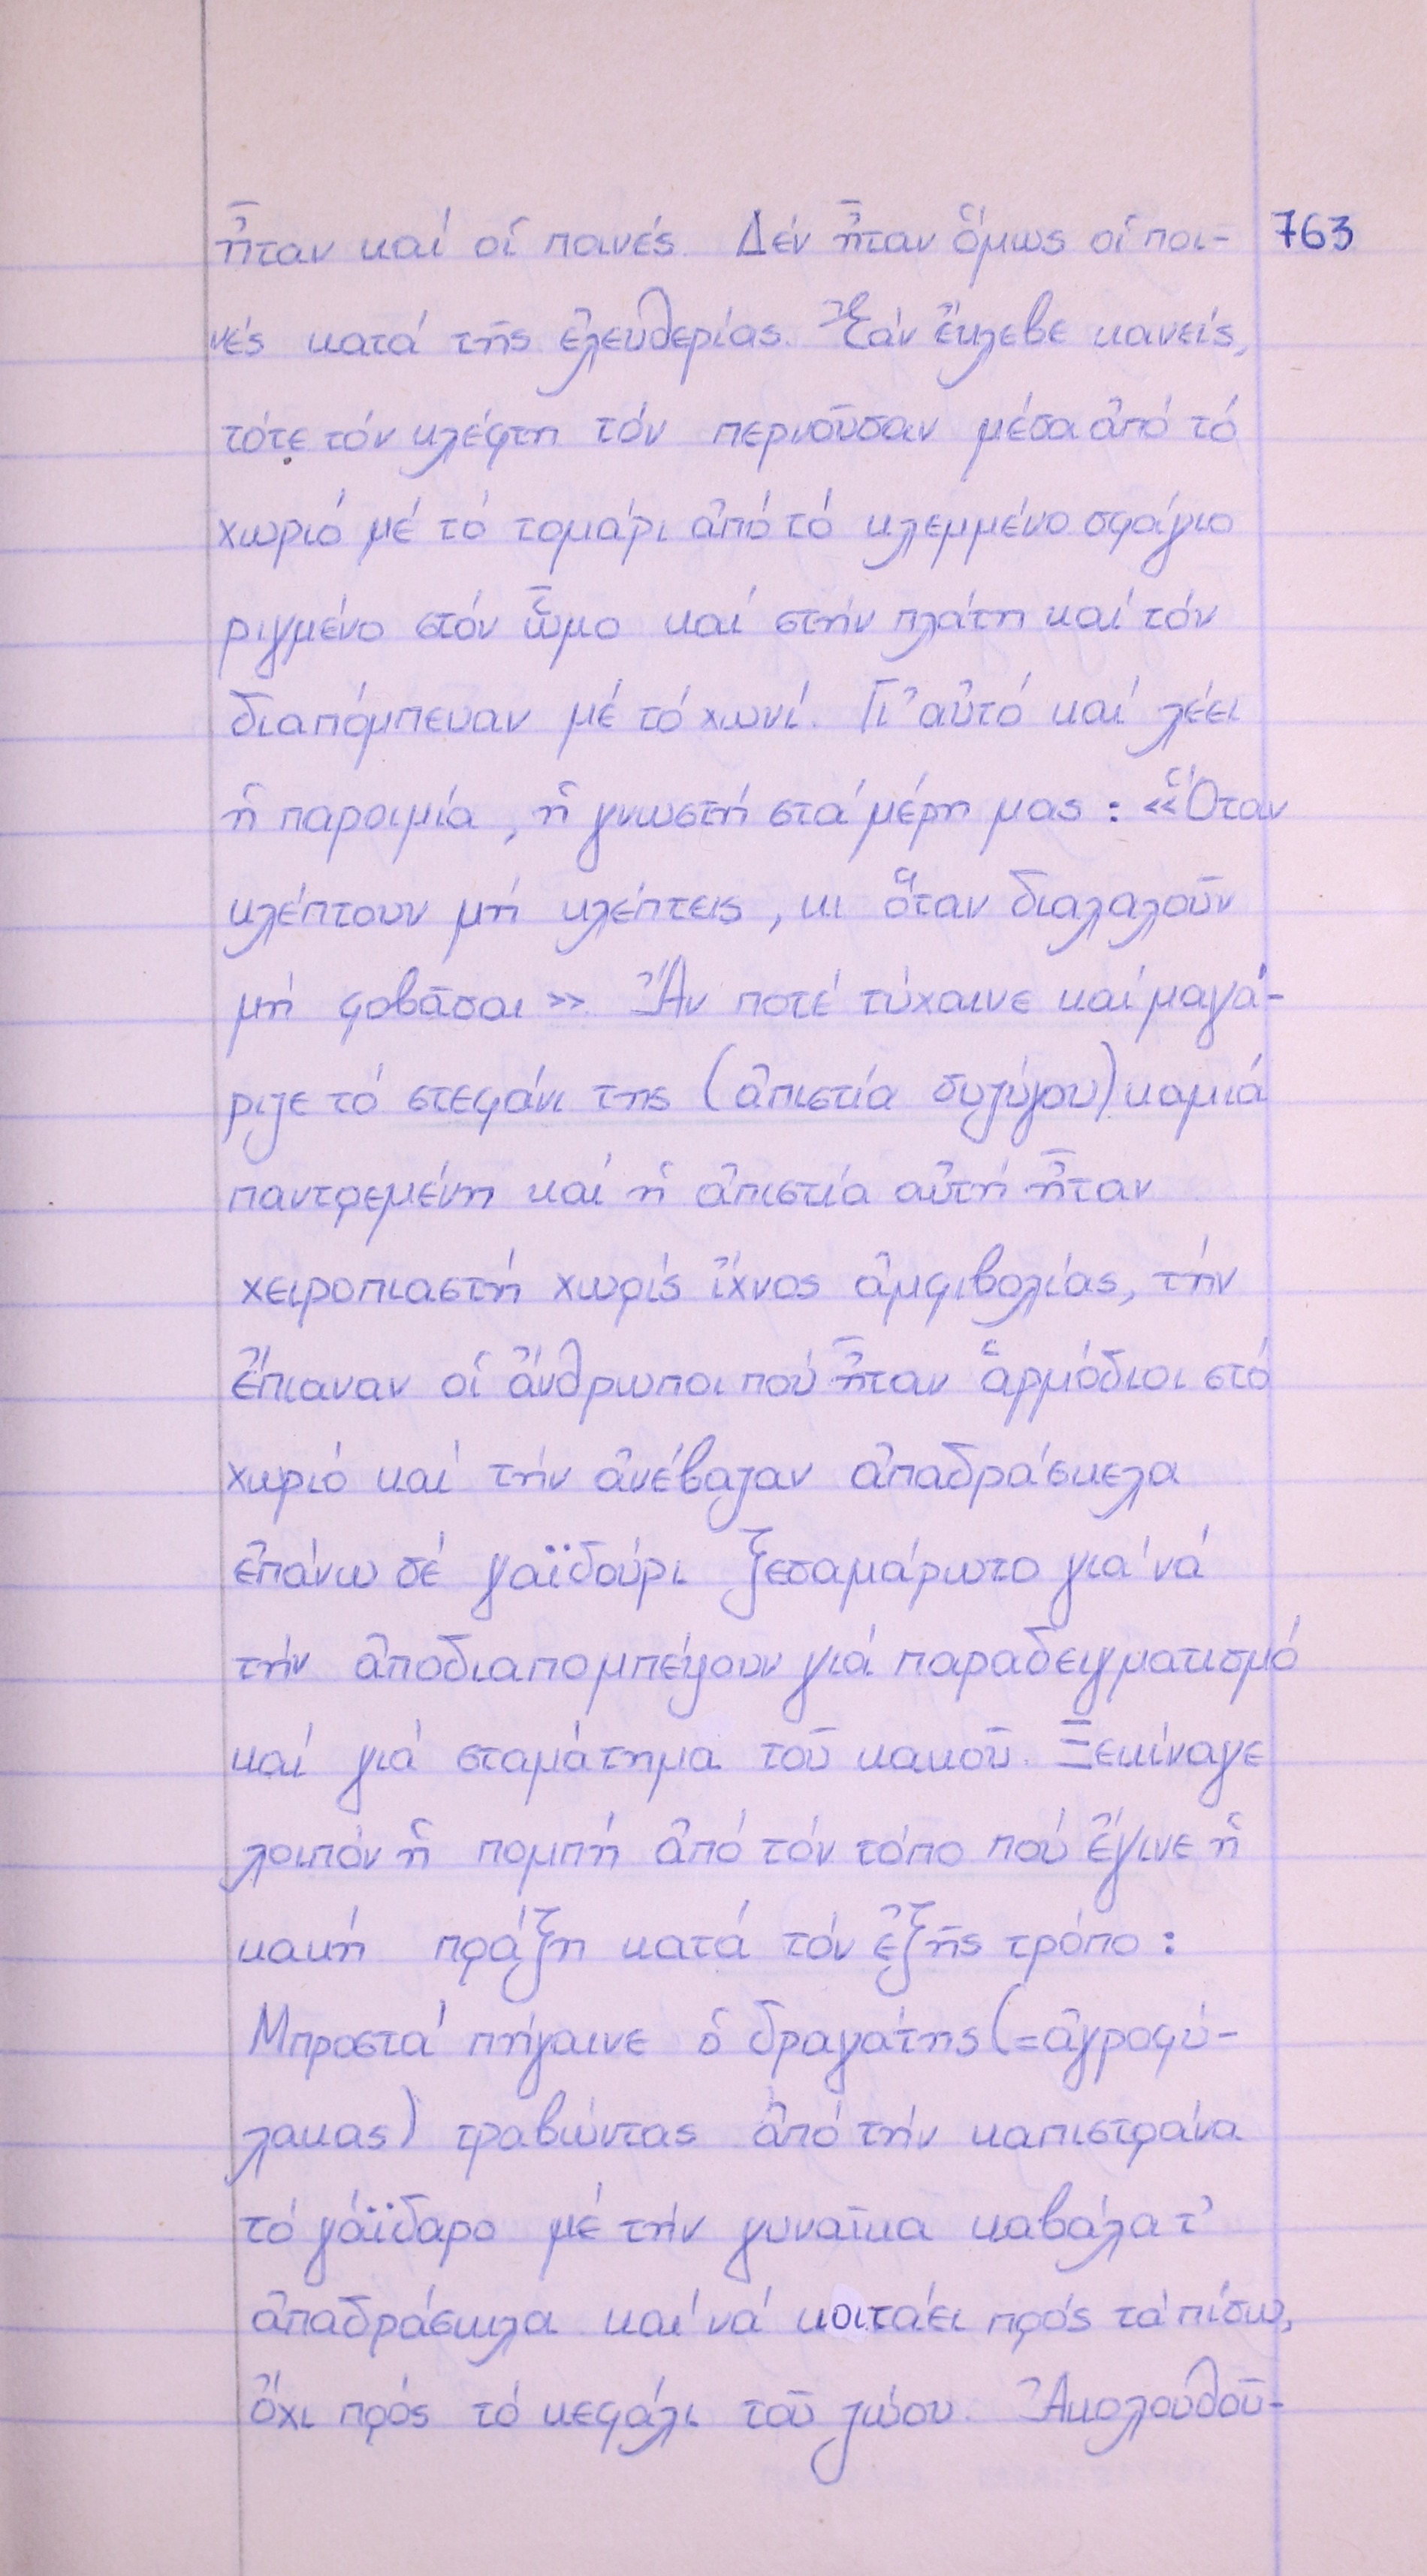 ἦταν καί οἱ ποινές. Δέν ἦταν ὅμως οἱ ποι- 763
νές κατά τῆς ἐλευθερίας. Ἐάν ἔκλεβε κανείς,
τότε τόν κλέφτη τόν περνοῦσαν μέσα ἀπό τό
χωριό μέ τό τομάρι ἀπό τό κλεμμένο σφάγιο
ριγμένο στόν ὦμο καί στήν πλάτη καί τόν
διαπόμπευαν μέ τό χωνί. Γι᾿ αὐτό καί λέει
ἡ παροιμία, ἡ γνωστή στά μέρη μας: «Ὅταν
κλέπτουν μή κλέπτεις, κι ὅταν διαλαλοῦν
μή φοβᾶσαι». Ἄν ποτέ τύχαινε καί μαγά-
ριζε τό στεφάνι της (ἀπιστία συζύγου) καμιά
παντρεμένη καί ἡ ἀπιστία αὐτή ἦταν
χειροπιαστή χωρίς ἴχνος ἀμφιβολίας, τήν
ἔπιαναν οἱ ἄνθρωποι πού ἦταν ἁρμόδιοι στό
χωριό καί τήν ἀνέβαζαν ἀπαδράσκελα
ἐπάνω σέ γαϊδούρι ξεσαμάρωτο γιά νά
τήν ἀποδιαπομπέψουν γιά παραδειγματισμό
καί γιά σταμάτημα τοῦ κακοῦ. Ξεκίναγε
λοιπόν ἡ πομπή ἀπό τόν τόπο πού ἔγινε ἡ
κακή πράξη κατά τόν ἐξῆς τρόπο:
Μπροστά πήγαινε ὁ δραγάτης (=ἀγροφύ-
λακας) τραβώντας ἀπό τήν καπιστράνα
τό γάϊδαρο μέ τήν γυναῖκα καβάλα τ᾿
ἀπαδράσκελα καί νά κοιτάει πρός τά πίσω,
ὄχι πρός τό κεφάλι τοῦ ζώου. Ἀκολουθοῦ-